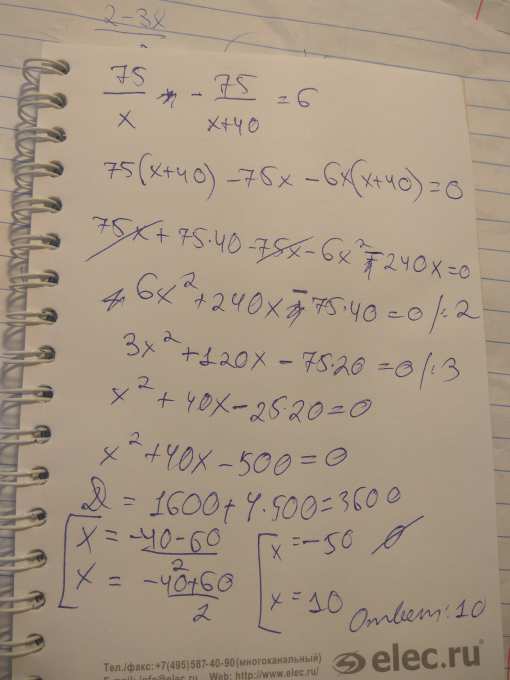 2-3x
75/x - 75/(x+40) = 6
75(x+40) - 75x - 6x(x+40) = 0
75x + 75·40 - 75x - 6x² - 240x = 0
6x² + 240x - 75·40 = 0 /:2
3x² + 120x - 75·20 = 0 /:3
x² + 40x - 25·20 = 0
x² + 40x - 500 = 0
D = 1600 + 4·500 = 3600
[ x = (-40-60)/2 [ x = -50 ∅
x = (-40+60)/2 x = 10
Ответ: 10
Тел./факс: +7(495)587-40-90 (многоканальный)
E-mail: info@elec.ru Web: http://www.elec.ru/
elec.ru®